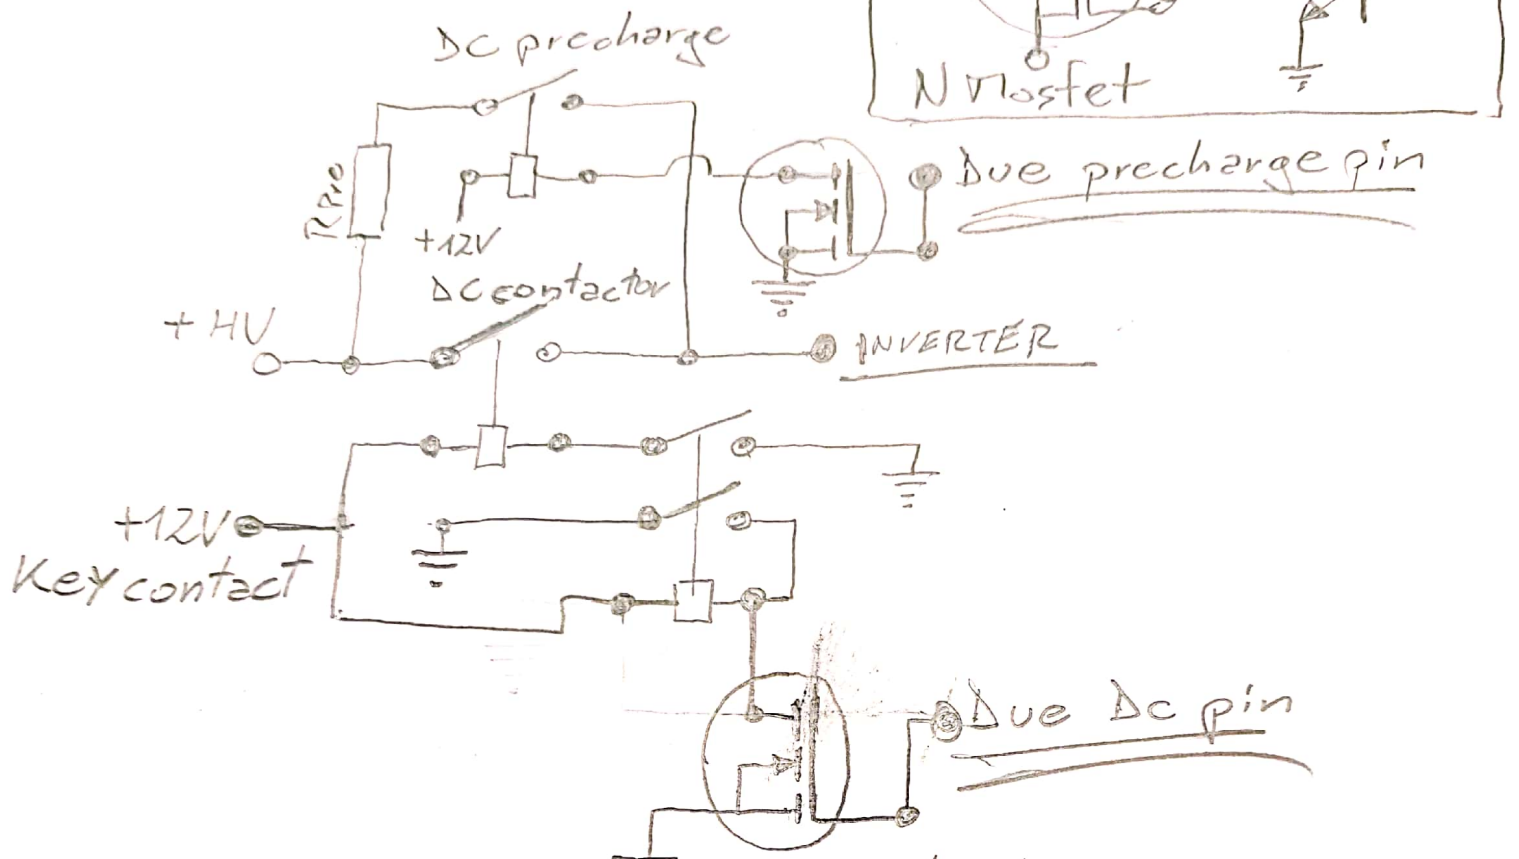 DC precharge
N Mosfet
Due precharge pin
RPre
+12V
DC contactor
+ HV
INVERTER
+12V
Key contact
Due Dc pin